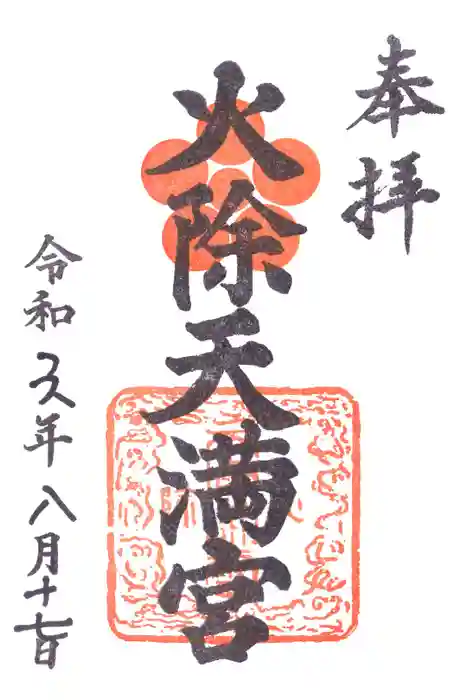 奉拝
火除天満宮
令和 年八月十七日